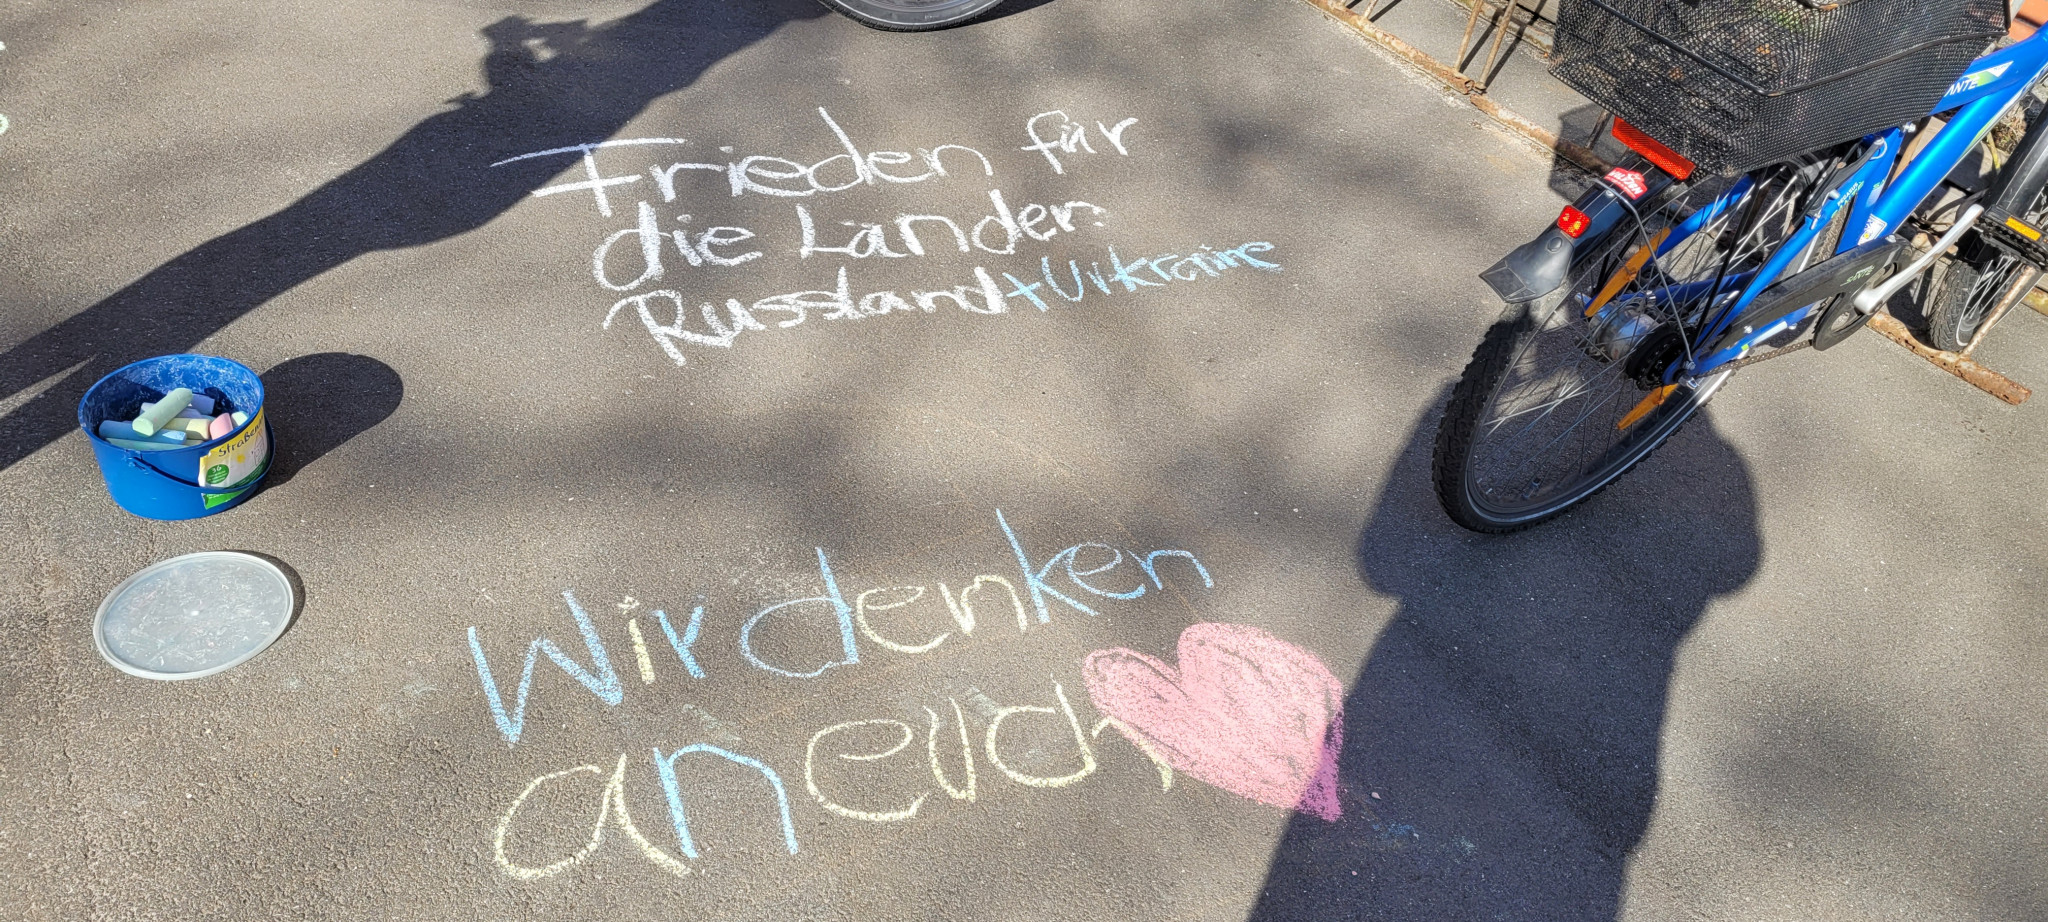 Frieden für
die Länder:
Russland + Urkraine
Wir denken
an euch
Straßen
36
ANTE